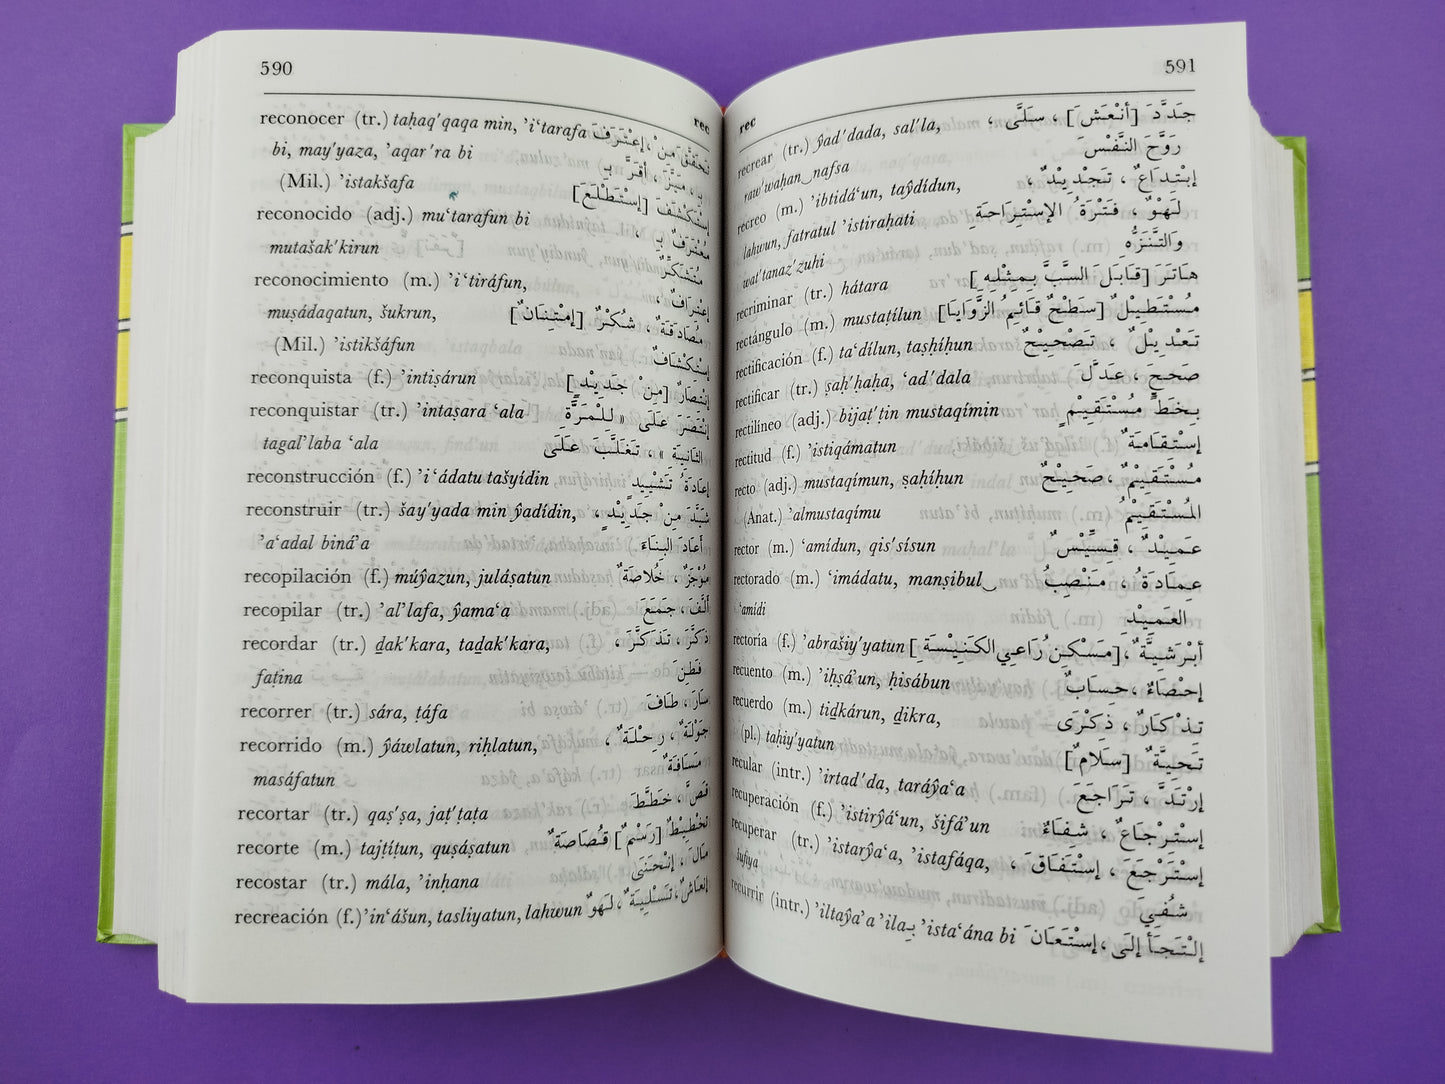 590
rec
reconocer (tr.) taḥaq'qaqa min, ’i‘tarafa تَحَقَّقَ مِنْ ، إعْتَرَفَ
bi, may'yaza, ’aqar'ra bi بِ ، مَيَّزَ ، أقَرَّ بِ
(Mil.) ’istakšafa إسْتَكْشَفَ [إسْتَطْلَعَ]
reconocido (adj.) mu‘tarafun bi مُعْتَرَفٌ بِ ،
mutašak'kirun مُتَشَكِّرٌ
reconocimiento (m.) ’i‘tiráfun, إعْتِرَافٌ ،
muṣádaqatun, šukrun, مُصَادَقَةٌ ، شُكْرٌ [إمْتِنَانٌ]
(Mil.) ’istikšáfun إسْتِكْشَافٌ
reconquista (f.) ’intiṣárun إنْتِصَارٌ [مِنْ جَدِيْدٍ]
reconquistar (tr.) ’intaṣara ‘ala إنْتَصَرَ عَلَى « لِلْمَرَّةِ
tagal'laba ‘ala الثَّانِيَةِ » ، تَغَلَّبَ عَلَى
reconstrucción (f.) ’i‘ádatu tašyídin إعَادَةُ تَشْيِيدٍ
reconstruir (tr.) šay'yada min ŷadídin, شَيَّدَ مِنْ جَدِيْدٍ ،
’a‘adal biná’a أعَادَ البِنَاءَ
recopilación (f.) múŷazun, juláṣatun مُوْجَزٌ ، خُلاصَةٌ
recopilar (tr.) ’al'lafa, ŷama‘a ألَّفَ ، جَمَعَ
recordar (tr.) ḏak'kara, taḏak'kara, ذَكَّرَ ، تَذَكَّرَ ،
faṭina فَطِنَ
recorrer (tr.) sára, ṭáfa سَارَ ، طَافَ
recorrido (m.) ŷáwlatun, riḥlatun, جَوْلَةٌ ، رِحْلَةٌ ،
masáfatun مَسَافَةٌ
recortar (tr.) qaṣ'ṣa, jaṭ'ṭaṭa قَصَّ ، خَطَّطَ
recorte (m.) tajtítun, quṣáṣatun تَخْطِيْطٌ [رَسْمٌ] قُصَاصَةٌ
recostar (tr.) mála, ’inḥana مَالَ ، إنْحَنَى
recreación (f.) ’in‘ášun, tasliyatun, lahwun إنْعَاشٌ ، تَسْلِيَةٌ ، لَهْوٌ
591
rec
recrear (tr.) ŷad'dada, sal'la, جَدَّدَ [أنْعَشَ] ، سَلَّى ،
raw'wahan‿nafsa رَوَّحَ النَّفْسَ
recreo (m.) ’ibtidá‘un, taŷdídun, إبْتِدَاعٌ ، تَجْدِيْدٌ ،
lahwun, fatratul ’istiraḥati لَهْوٌ ، فَتْرَةُ الإسْتِرَاحَةِ
wat'tanaz'zuhi وَالتَّنَزُّهِ
recriminar (tr.) hátara هَاتَرَ [قَابَلَ السَّبَّ بِمِثْلِهِ]
rectángulo (m.) mustaṭílun مُسْتَطِيْلٌ [سَطْحٌ قَائِمُ الزَّوَايَا]
rectificación (f.) ta‘dílun, taṣḥíḥun تَعْدِيْلٌ ، تَصْحِيْحٌ
rectificar (tr.) ṣaḥ'ḥaḥa, ‘ad'dala صَحَّحَ ، عَدَّلَ
rectilíneo (adj.) bijaṭ'ṭin mustaqímin بِخَطٍّ مُسْتَقِيْمٍ
rectitud (f.) ’istiqámatun إسْتِقَامَةٌ
recto (adj.) mustaqímun, ṣaḥíḥun مُسْتَقِيْمٌ ، صَحِيْحٌ
(Anat.) ’almustaqímu المُسْتَقِيْمُ
rector (m.) ‘amídun, qis'sísun عَمِيْدٌ ، قِسِّيْسٌ
rectorado (m.) ‘imádatu, manṣibul‿ عِمَادَةُ ، مَنْصِبُ
‘amídi العَمِيْدِ
rectoría (f.) ’abrašiy'yatun أبْرَشِيَّةٌ ، [مَسْكَنُ رَاعِي الكَنِيْسَةِ]
recuento (m.) ’iḥṣá’un, ḥisábun إحْصَاءٌ ، حِسَابٌ
recuerdo (m.) tiḏkárun, ḏikra, تِذْكَارٌ ، ذِكْرَى
(pl.) taḥiy'yatun تَحِيَّةٌ [سَلامٌ]
recular (intr.) ’irtad'da, taráŷa‘a إرْتَدَّ ، تَرَاجَعَ
recuperación (f.) ’istirŷá‘un, šifá’un إسْتِرْجَاعٌ ، شِفَاءٌ
recuperar (tr.) ’istarŷa‘a, ’istafáqa, إسْتَرْجَعَ ، إسْتَفَاقَ ،
šufiya شُفِيَ
recurrir (intr.) ’iltaŷa’a ’ila بِ, ’ista‘ána bi إلْتَجَأ إلَى ، إسْتَعَانَ